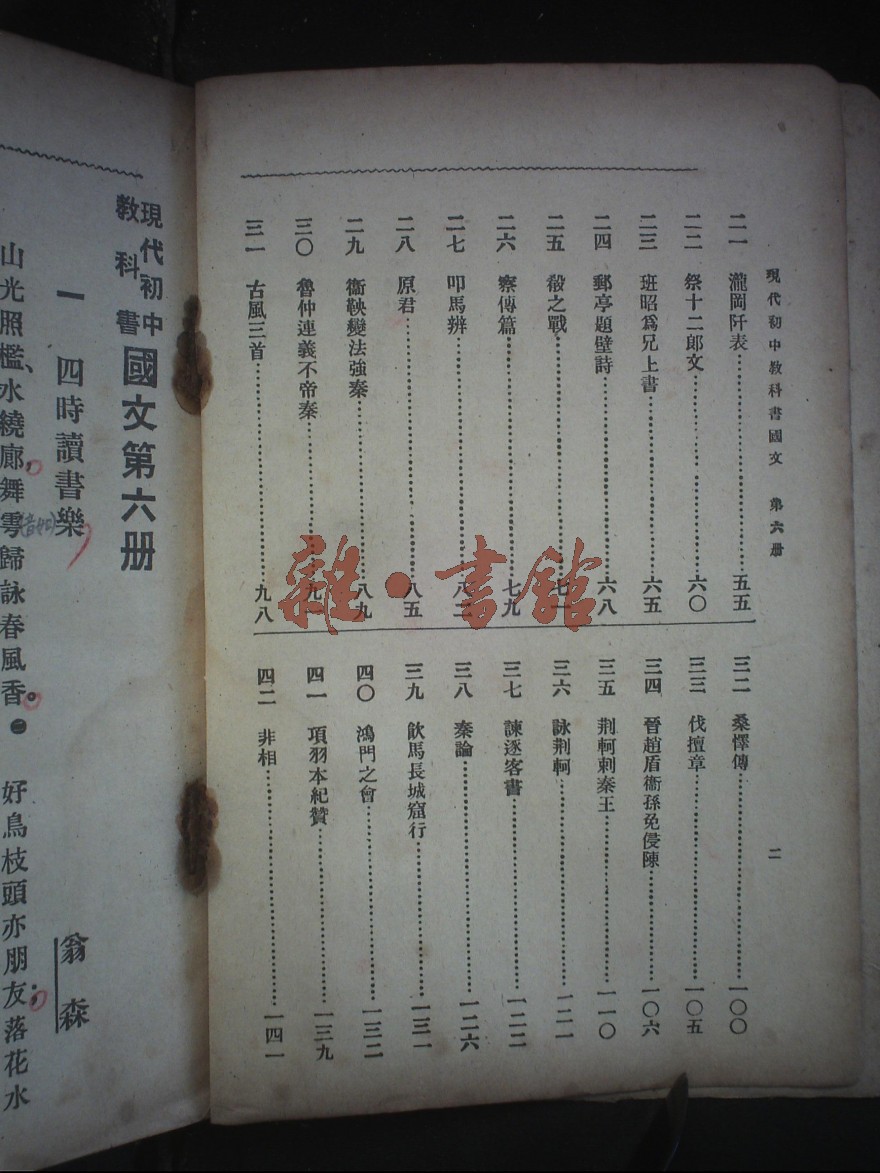 現代初中教科書國文 第六册 二
二一 瀧岡阡表……五五
二二 祭十二郎文……六〇
二三 班昭爲兄上書……六五
二四 郵亭題壁詩……六八
二五 殽之戰……七一
二六 察傳篇……七九
二七 叩馬辨……八二
二八 原君……八五
二九 衞鞅變法強秦……八九
三〇 魯仲連義不帝秦……九一
三一 古風三首……九八
三二 桑懌傳……一〇〇
三三 伐檀章……一〇五
三四 晉趙盾衞孫免侵陳……一〇六
三五 荆軻刺秦王……一一〇
三六 詠荆軻……一二一
三七 諫逐客書……一二二
三八 秦論……一二六
三九 飲馬長城窟行……一三一
四〇 鴻門之會……一三二
四一 項羽本紀贊……一三九
四二 非相……一四一
現代初中教科書 國文第六册
一 四時讀書樂 翁森
山光照檻、水繞廊，舞雩歸詠春風香。 好鳥枝頭亦朋友；落花水
雜·書館